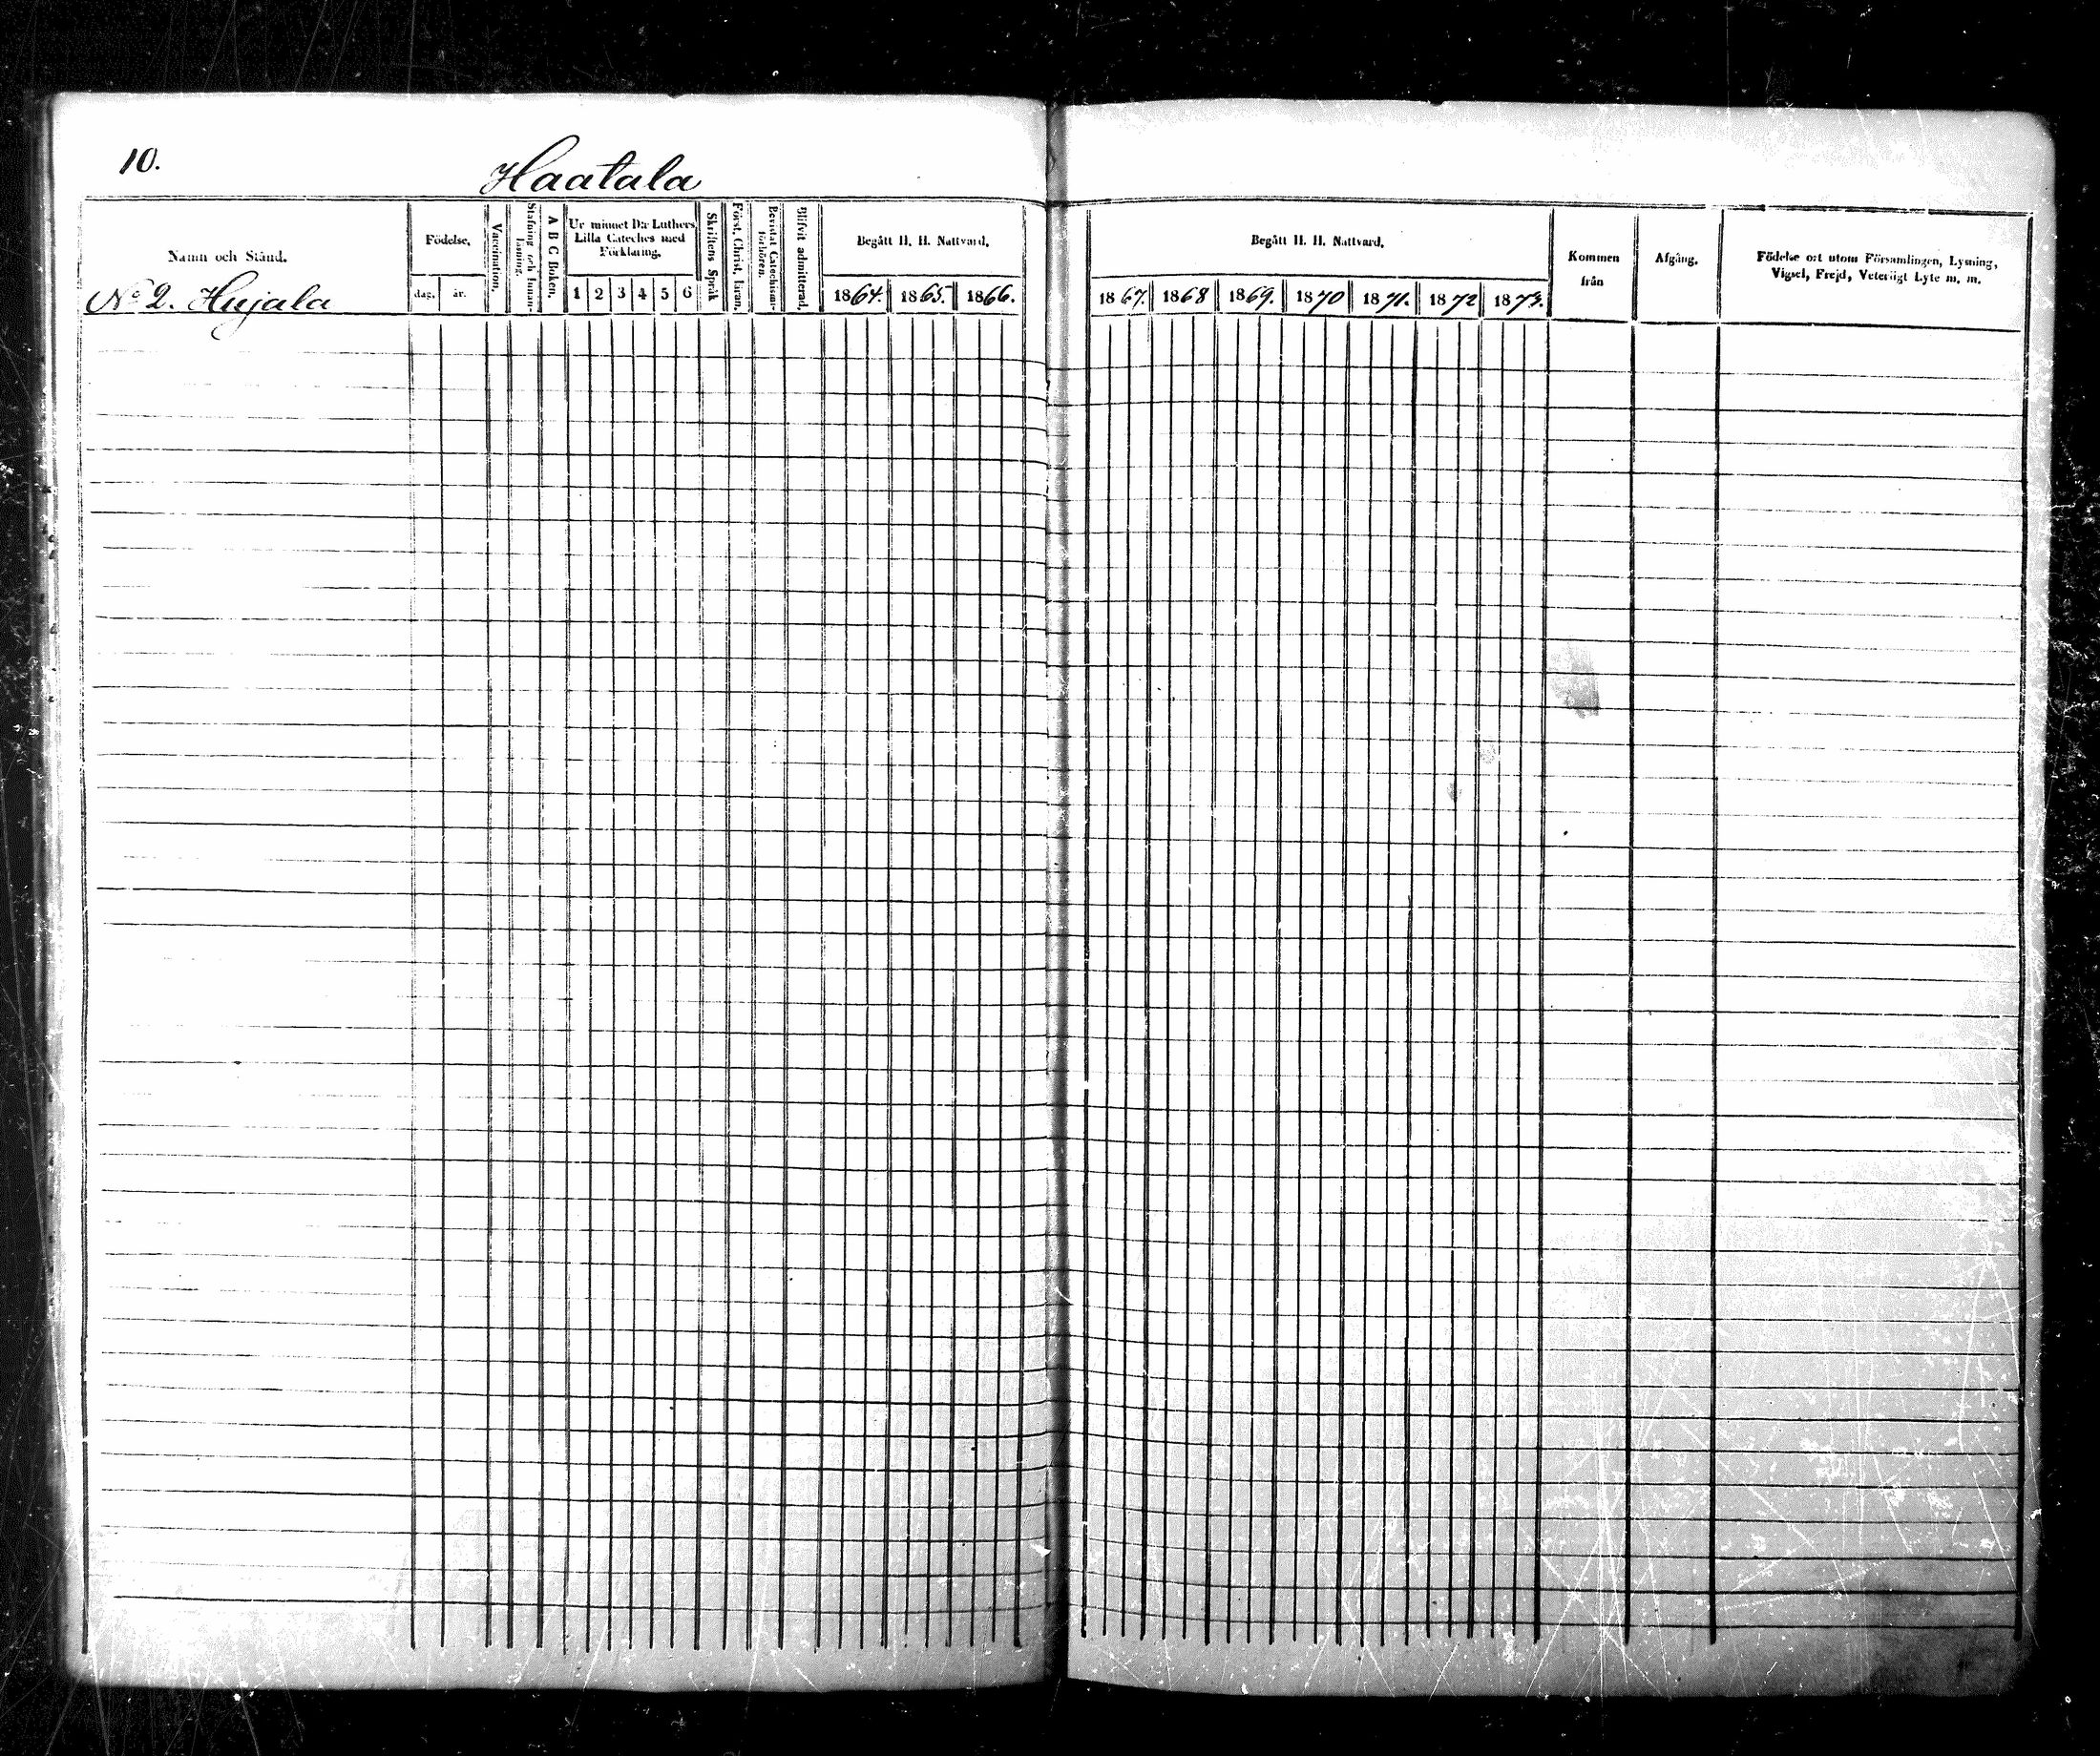 10.
Haatala
Namn och Stånd.
Födelse,
dag.
år.
Vaccination.
Stafning och Innan-
läsning.
A B C Boken.
Ur minnet D:r Luthers
Lilla Cateches med
Förklaring.
1 2 3 4 5 6
Skriftens Språk
Först. Christ. läran.
Bevistat Catechismi-
förhören.
Blifvit admitterad.
Begått H. H. Nattvard.
1864. 1865. 1866.
No 2. Hujala
Begått H. H. Nattvard.
1867. 1868 1869. 1870 1871. 1872 1873.
Kommen
från
Afgång.
Födelse ort utom Församlingen, Lysning,
Vigsel, Frejd, Veterligt Lyte m. m.